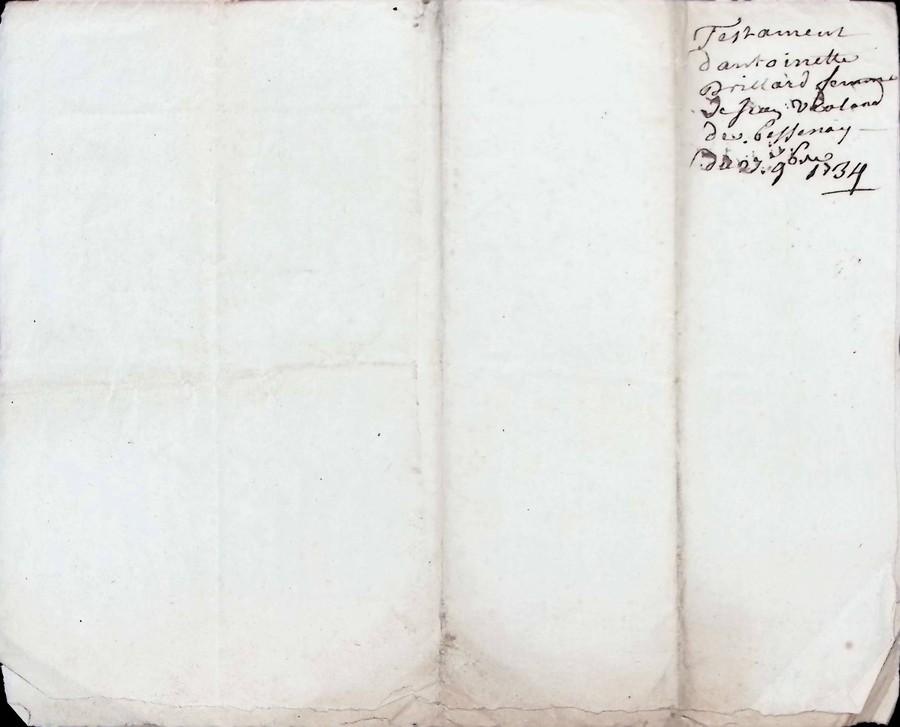 Testament
dantoinette
Brillard femme
de Jean
de Bessenay
du 27. 9bre 1734